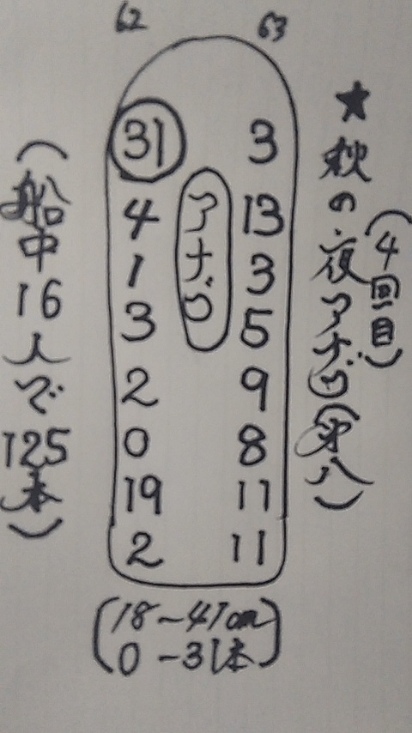 ★秋の夜アナゴ(第八)
(4回目)
62 63
31 3
4 13
1 3
3 5
2 9
0 8
19 11
2 11
アナゴ
(18~41cm
0-31本)
(船中16人で125本)